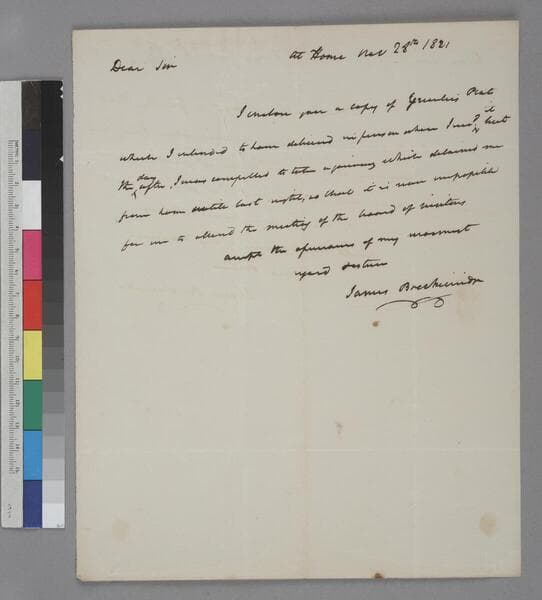 At Home Nov 28th 1821
Dear Sir
I enclose you a copy of Greenlees Plat
which I intended to have delivered in person when I
the day after, I was compelled to take a journey which detained me
from home untile last night, so that it is now impossible
for me to attend the meeting of the board of visitors
accept the assurances of my warmest
regard & esteem
James Breckinridge